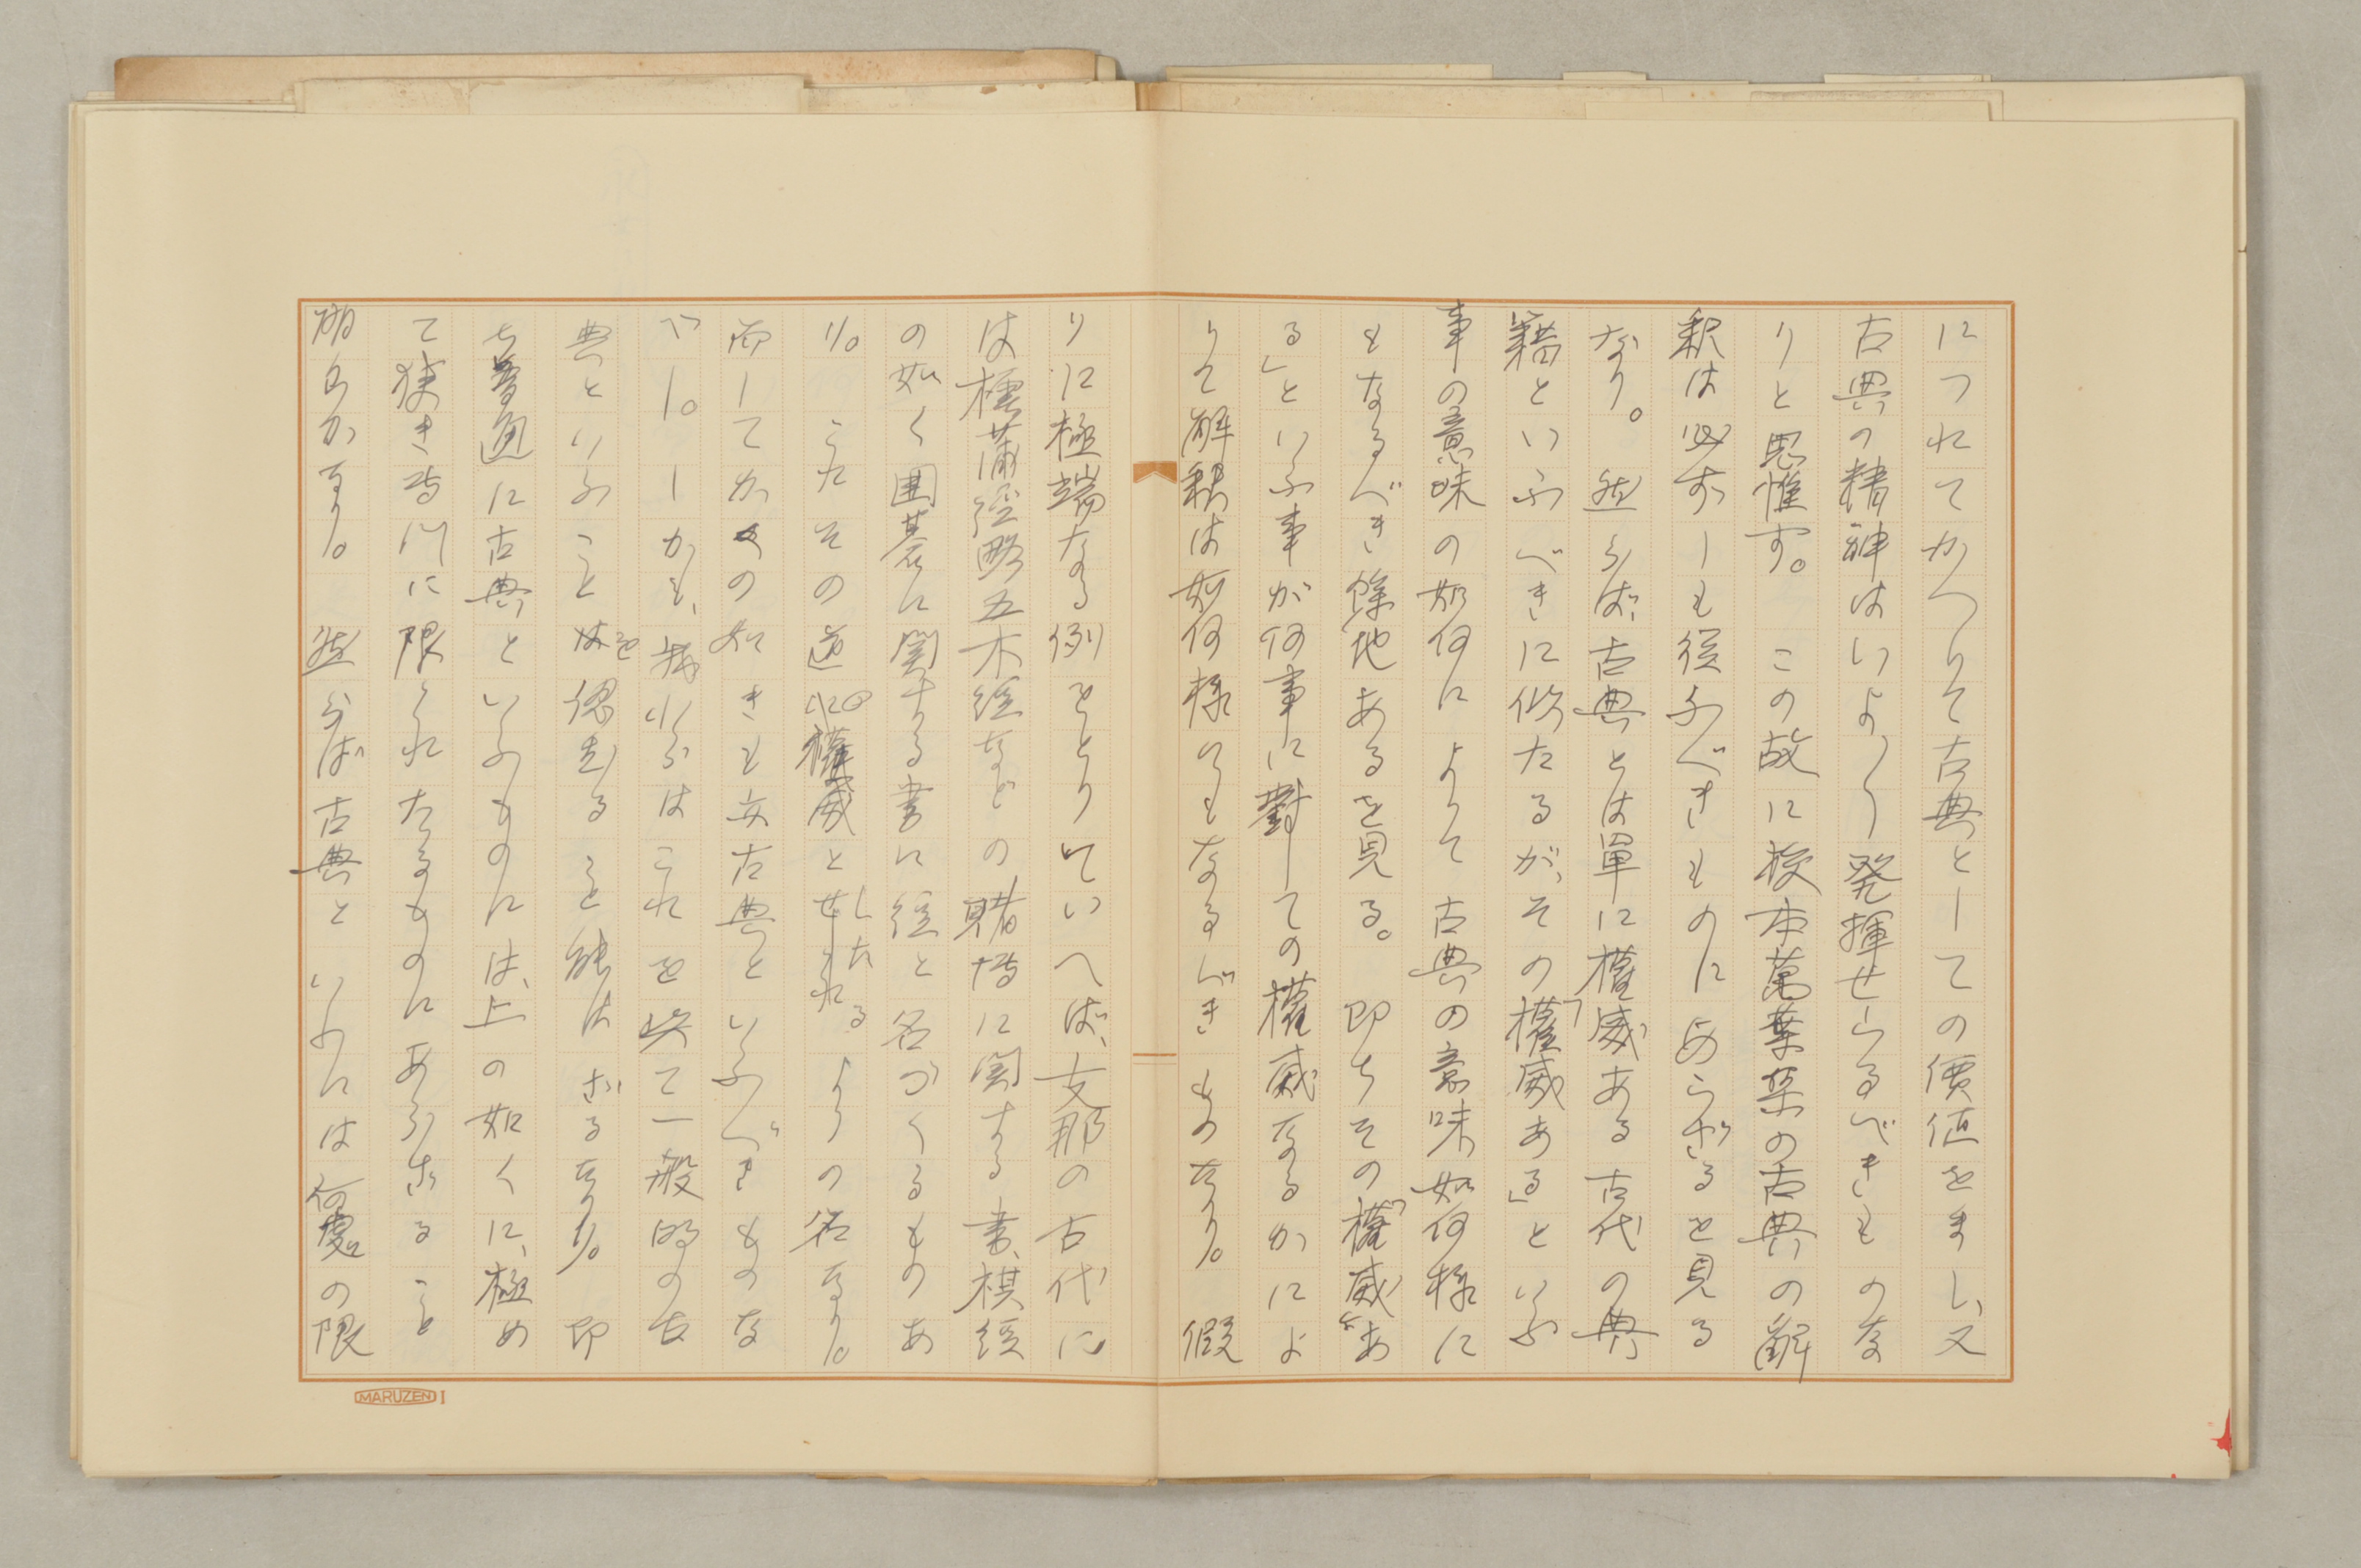 につれてかへりて古典としての價値をまし、又
古典の精神はいよ〳〵発揮せらるべきものな
りと思惟す。 この故に校本萬葉集の古典の解
釈は必ずしも従ふべきものにあらざるを見る
なり。 然らば、古典とは單に權威ある古代の典
籍といふべきに似たるが、その「權威ある」といふ
事の意味の如何によりて古典の意味如何様に
もなるべき餘地あるを見る。 即ちその「權威あ
る」といふ事が何事に對しての權威なるかによ
りて解釋は如何様にもなるべきものなり。 假
りに極端なる例をとりていへば、支那の古代に
は樗蒲經略五木經などの賭博に関する書、棋経
の如く囲碁に関する書に経と名づくるものあ
り。 これその道の權威としたるよりの名なり。
而してかくの如きも亦古典といふべきものな
べし。 しかも、我々はこれを以て一般的の古
典といふことを認むること能はざるなり。 即
ち普通に古典といふものには、上の如くに、極め
て狭き専門に限られたるものにあらざること
明らかなり。 然らば古典といふには何處の限
MARUZEN I